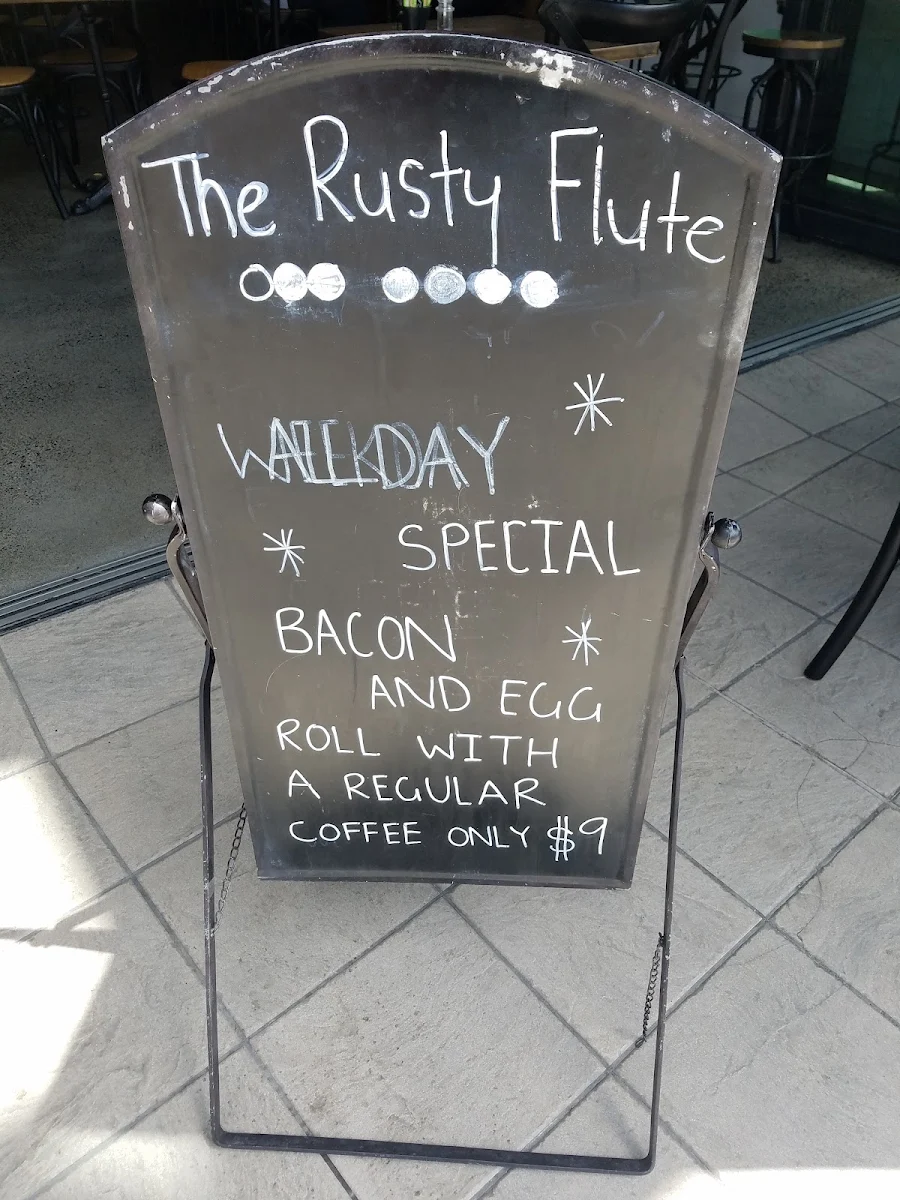 The Rusty Flute
WEEKDAY
SPECIAL
BACON
AND EGG
ROLL WITH
A REGULAR
COFFEE ONLY $9